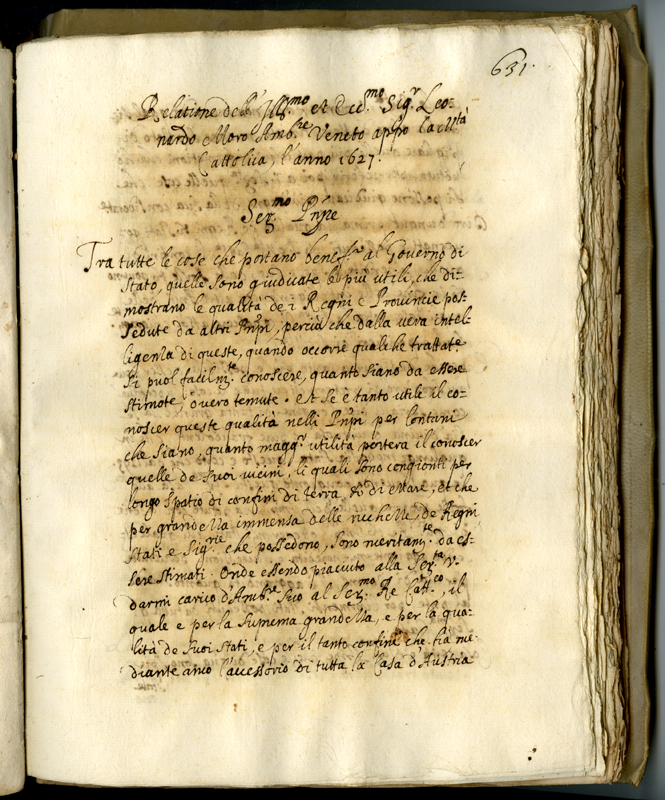 631.
Relatione dell' Ill.mo et Ecc.mo Sig.r Leo-
nardo Moro Amb.re Veneto appo la M.tà
Cattolica, l'anno 1627.
Ser.mo Pnpe
Tra tutte le cose che portano benef.o al Governo di
Stato, quelle sono giudicate le più utili, che di-
mostrano le qualità de i Regni e Provincie pos-
sedute da altri Pnpi, perciò che dalla vera intel-
ligenza di queste, quando occorre qualche trattat.e
si puol facilm.te conoscere, quanto siano da essere
stimate, overo temute. et se è tanto utili il co-
noscer queste qualità nelli Pnpi per lontani
che siano, quanto magg.r utilità porterà il conoscer
quelle de suoi vicini, li quali sono congionti per
longo spatio di confini di terra, & di Mare, et che
per grandezza immensa delle richezze, de Regni
stati e Sig.rie che possedono, sono meritam.te da es-
sere stimati. Onde essendo piacciuto alla Ser.tà V.
darmi carico d'Amb.re suo al Ser.mo Re Catt.co, il
quale e per la suprema grandezza, e per la qua-
lità de suoi stati, e per il tanto confine che hà me-
diante anco l'accessorio di tutta la Casa d'Austria